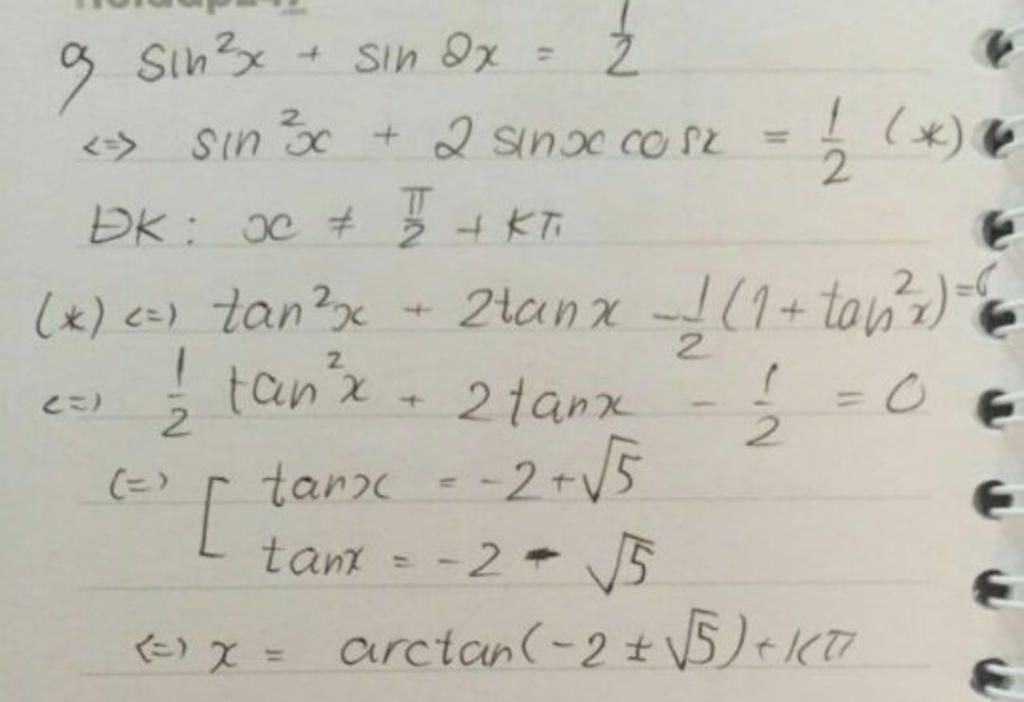 g sin²x + sin 2x = 1/2
<=> sin²x + 2 sinx cosx = 1/2 (*)
ĐK: x ≠ π/2 + kπ
(*) <=> tan²x + 2tanx - 1/2(1 + tan²x) = 0
<=> 1/2 tan²x + 2tanx - 1/2 = 0
<=> [ tanx = -2 + √5
tanx = -2 - √5
<=> x = arctan(-2 ± √5) + kπ